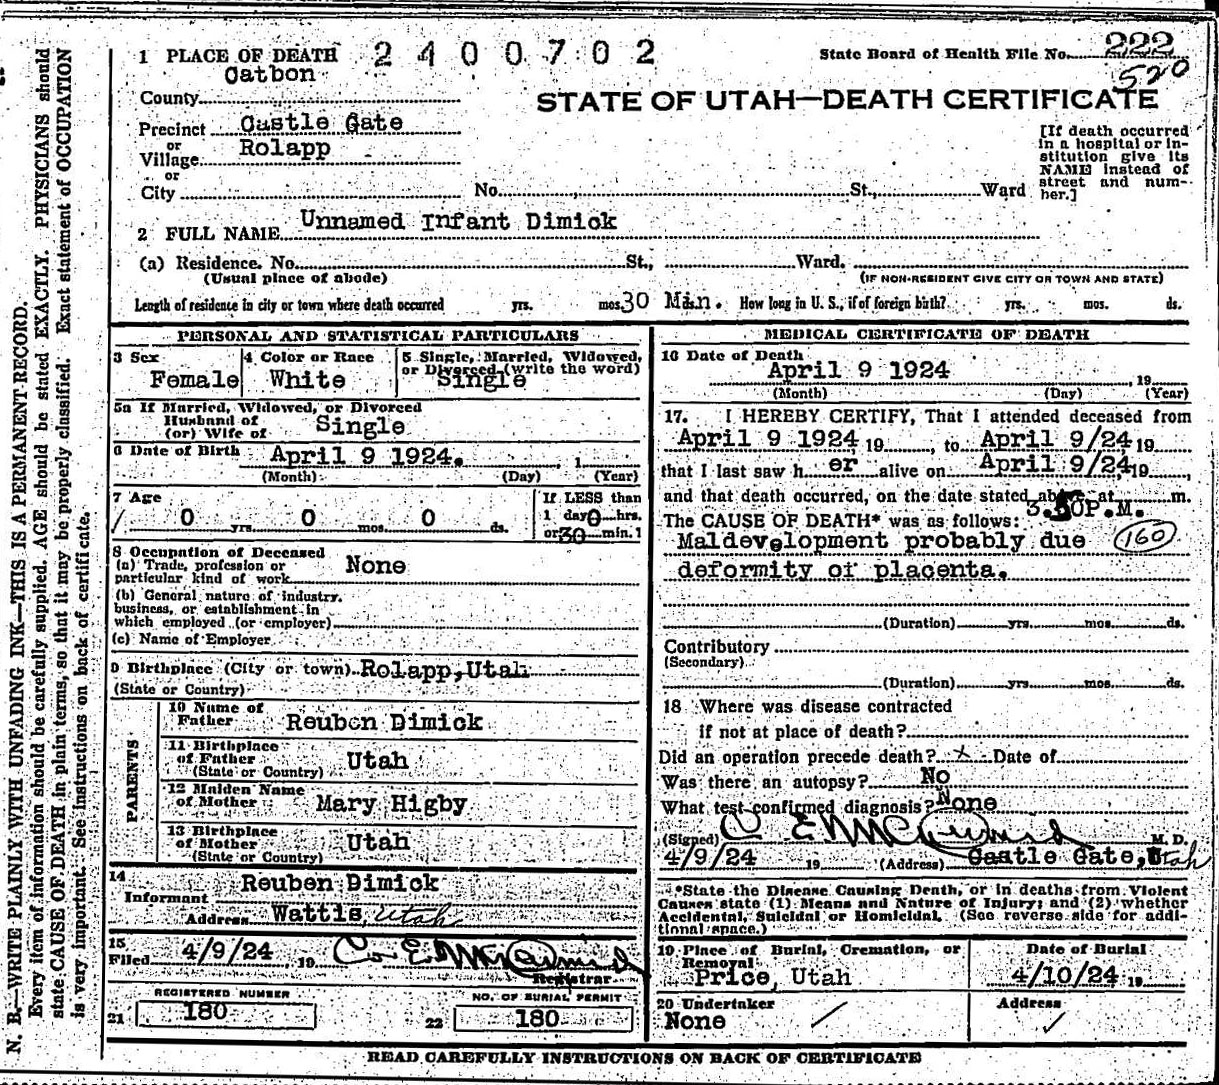 1 PLACE OF DEATH 2 4 0 0 7 0 2
State Board of Health File No. 222
520
STATE OF UTAH—DEATH CERTIFICATE
County Catbon
Precinct Castle Gate
or
Village Rolapp
or
City No. St., Ward
[If death occurred
in a hospital or in-
stitution give its
NAME instead of
street and num-
ber.]
2 FULL NAME Unnamed Infant Dimick
(a) Residence. No. St., Ward.
(Usual place of abode) (IF NON-RESIDENT GIVE CITY OR TOWN AND STATE)
Length of residence in city or town where death occurred yrs. mos. 30 Min. How long in U. S., if of foreign birth? yrs. mos. ds.
PERSONAL AND STATISTICAL PARTICULARS
3 Sex Female
4 Color or Race White
5 Single, Married, Widowed,
or Divorced (write the word)
Single
5a If Married, Widowed, or Divorced
Husband of
(or) Wife of Single
6 Date of Birth April 9 1924. , 1
(Month) (Day) (Year)
7 Age
0 yrs. 0 mos. 0 ds.
If LESS than
1 day 0 hrs.
or 30 min. ?
8 Occupation of Deceased
(a) Trade, profession or
particular kind of work None
(b) General nature of industry,
business, or establishment in
which employed (or employer)
(c) Name of Employer
9 Birthplace (City or town) Rolapp, Utah
(State or Country)
PARENTS
10 Name of
Father Reuben Dimick
11 Birthplace
of Father Utah
(State or Country)
12 Maiden Name
of Mother Mary Higby
13 Birthplace
of Mother Utah
(State or Country)
14
Informant Reuben Dimick
Address Wattis, Utah
15
Filed 4/9/24 , 19
Registrar
REGISTERED NUMBER
21 180
NO. OF BURIAL PERMIT
22 180
MEDICAL CERTIFICATE OF DEATH
16 Date of Death
April 9 1924 , 19
(Month) (Day) (Year)
17. I HEREBY CERTIFY, That I attended deceased from
April 9 1924, 19 , to April 9/24, 19
that I last saw h er alive on April 9/24, 19 ,
and that death occurred, on the date stated above, at m.
3.50P.M.
The CAUSE OF DEATH* was as follows:
Maldevelopment probably due 160
deformity of placenta.
(Duration) yrs. mos. ds.
Contributory
(Secondary)
(Duration) yrs. mos. ds.
18 Where was disease contracted
if not at place of death?
Did an operation precede death? x Date of
Was there an autopsy? No
What test confirmed diagnosis? None
(Signed) M. D.
4/9/24 19 (Address) Castle Gate, Utah
*State the Disease Causing Death, or in deaths from Violent
Causes state (1) Means and Nature of Injury; and (2) whether
Accidental, Suicidal or Homicidal. (See reverse side for addi-
tional space.)
19 Place of Burial, Cremation, or
Removal
Price, Utah
Date of Burial
4/10/24 19
20 Undertaker
None
Address
READ CAREFULLY INSTRUCTIONS ON BACK OF CERTIFICATE
N. B.—WRITE PLAINLY WITH UNFADING INK—THIS IS A PERMANENT RECORD.
Every item of information should be carefully supplied. AGE should be stated EXACTLY. PHYSICIANS should
state CAUSE OF DEATH in plain terms, so that it may be properly classified. Exact statement of OCCUPATION
is very important. See instructions on back of certificate.